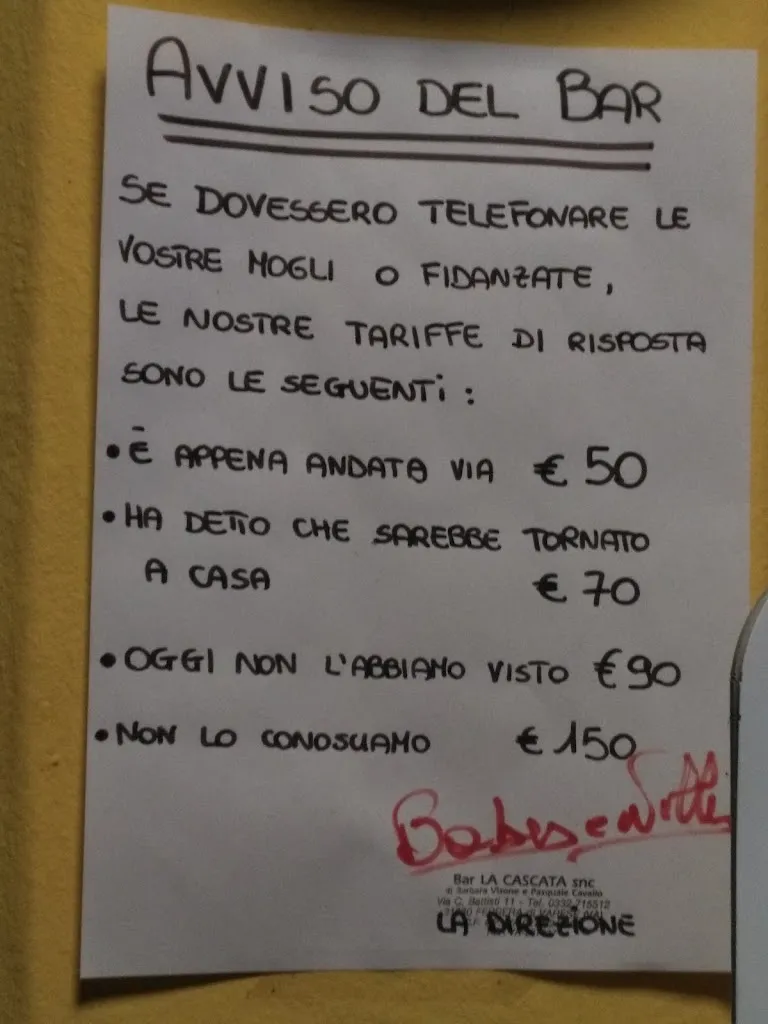 AVVISO DEL BAR
SE DOVESSERO TELEFONARE LE
VOSTRE MOGLI O FIDANZATE,
LE NOSTRE TARIFFE DI RISPOSTA
SONO LE SEGUENTI:
• È APPENA ANDATO VIA € 50
• HA DETTO CHE SAREBBE TORNATO
A CASA € 70
• OGGI NON L'ABBIAMO VISTO € 90
• NON LO CONOSCIAMO € 150
Bar LA CASCATA snc
di Barbara Virone e Pasquale Cavallo
Via C. Battisti 11 - Tel. 0332 715512
LA DIREZIONE